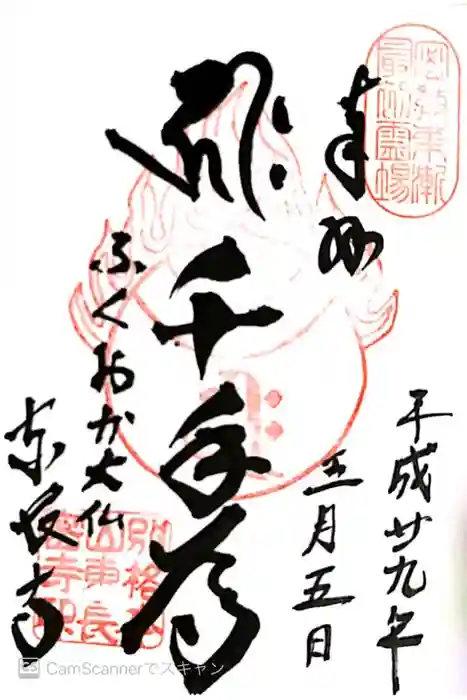 密教東漸
最初霊場
奉拝
平成廿九年
三月五日
千手尊
ふくおか大仏
東長寺
別格本
山東長
密寺印
CS CamScannerでスキャン